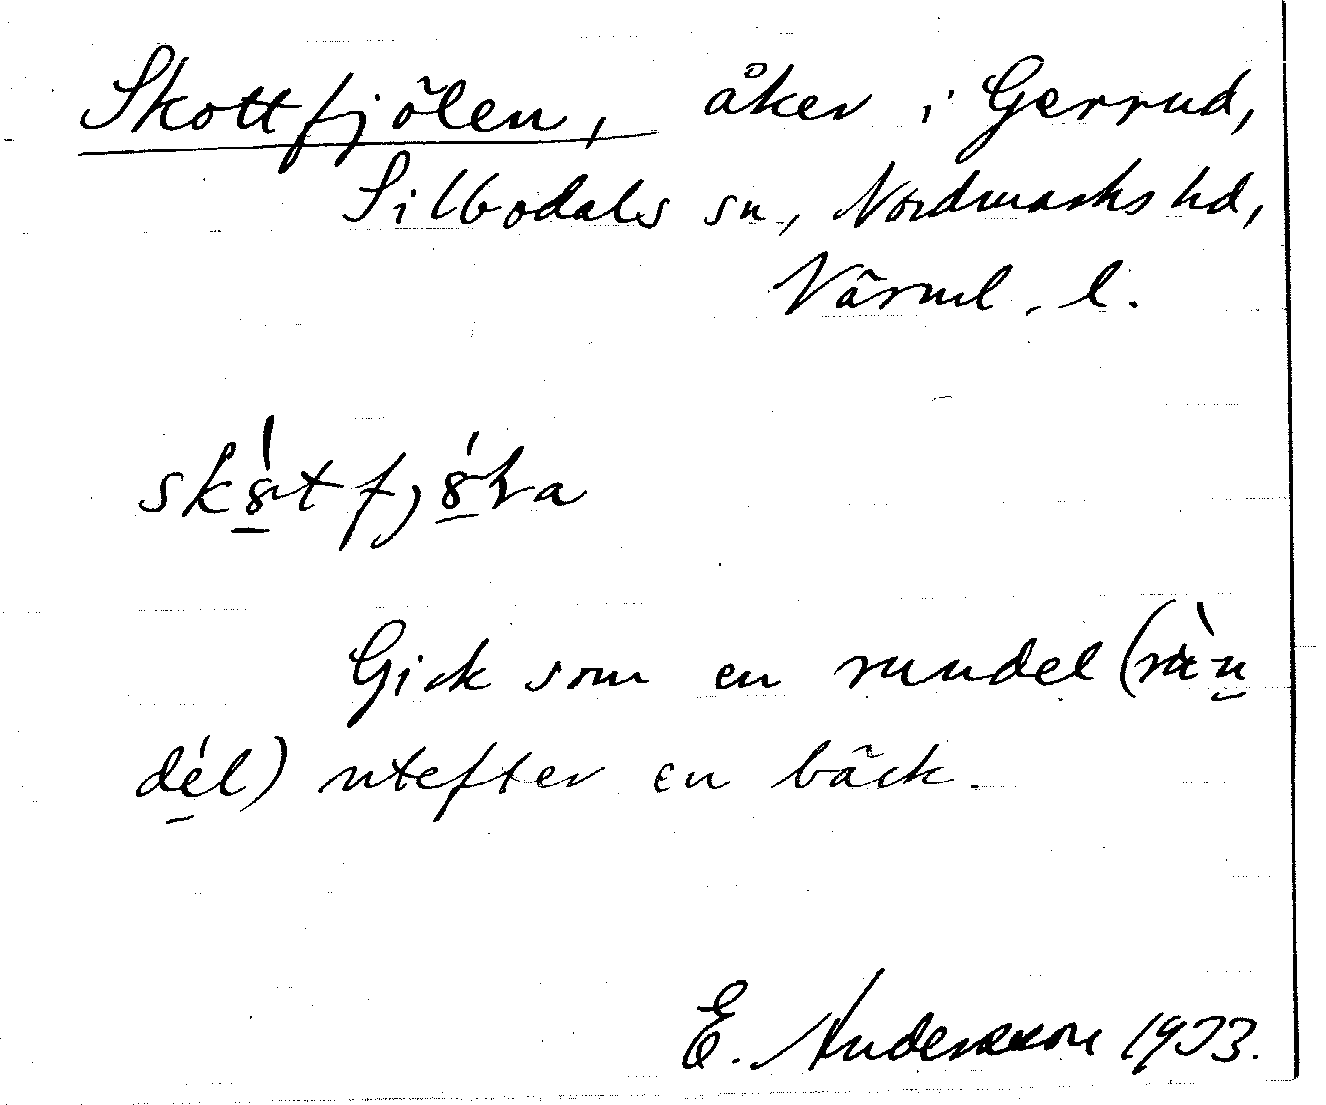 Skottfjölen, åker i Gerrud,
Silbodals sn, Nordmarks hd,
Värml. l.
sk8̲́tfj8̲́ɫa
Gick som en rundel (rùn̲
dé̲l) utefter en bäck.
E. Andersson 1933.